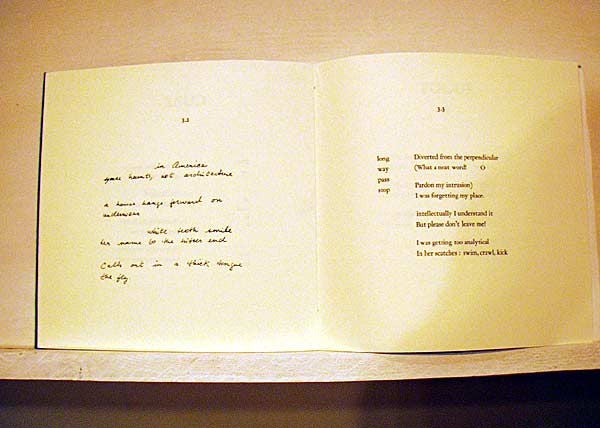 3.2
in America
space haunts, not architecture
a house hangs forward on
underwear
white teeth smile
her name to the bitter end
Calls out in a thick tongue
the fly.
3.3
long
way
pass
stop
Diverted from the perpendicular
(What a neat word! O
Pardon my intrusion)
I was forgetting my place.
intellectually I understand it
But please don't leave me!
I was getting too analytical
In her scatches : swim, crawl, kick